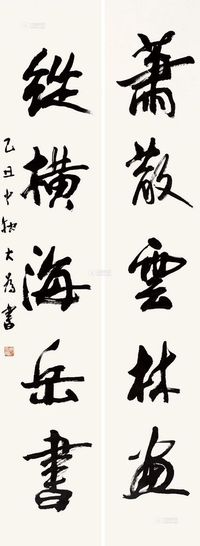 蕭散雲林畫
縱橫海岳書
乙丑中秋大為書